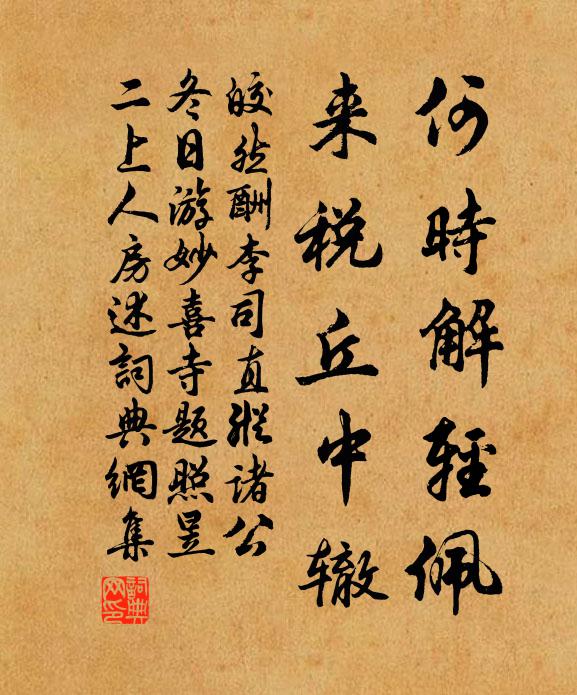 何時解輕佩
来税丘中轍
皎然酬李司直縱諸公
冬日游妙喜寺題照昱
二上人房述詞典網集
詞典网印